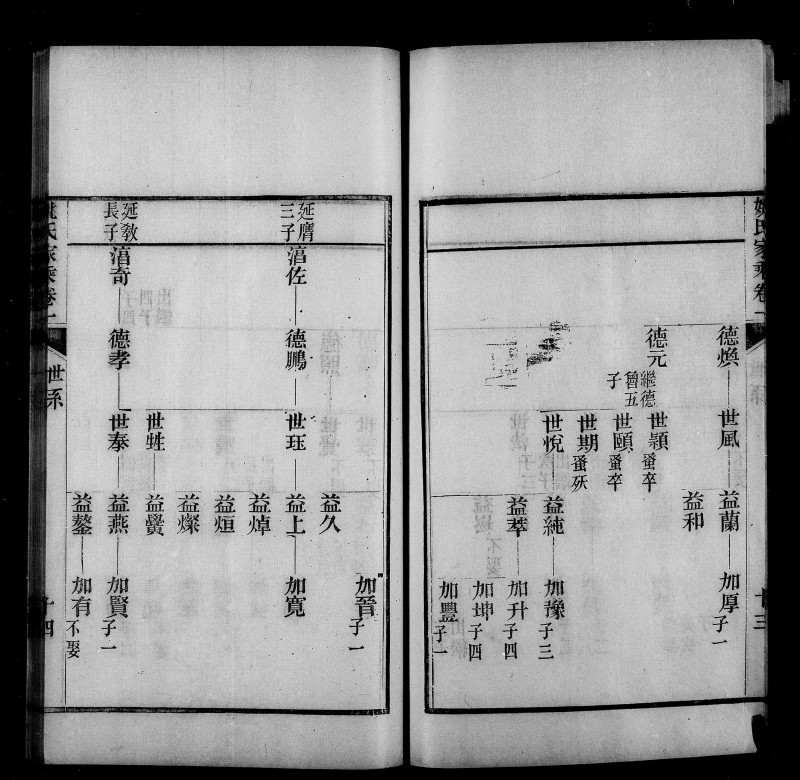 姚氏家乘卷一
世系
十三
德煥
世風
益蘭
加厚 子一
益和
德元 繼德魯五子
世顥 蚤卒
世頤 蚤卒
世期 蚤殀
世悅
益純
加豫 子三
益萃
加升 子四
加坤 子四
加豐 子一
加晉 子一
益久
延膺三子
涫佐
德鵬
世玨
益上
加寬
益焯
益烜
益燦
世甡
益黌
延教長子
涫奇
德孝
世泰
益燕
加賢 子一
益鏊
加有 不娶
姚氏家乘卷一
世系
十四